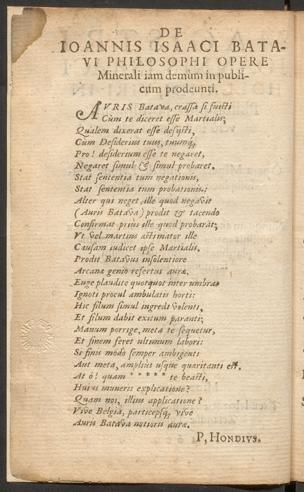 DE
IOANNIS ISAACI BATA-
VI PHILOSOPHI OPERE
Minerali iam demùm in publi-
cum prodeunti.
AVRIS Batava, crassa si fuisti
Cùm te diceret esse Martialis,
Qualem dixerat esse desijsti,
Cùm Desiderius tuus, tuumq́,
Pro! desiderium esse te negaret,
Negaret simul & simul probaret.
Stat sententia tum negationis,
Stat sententia tum probationis.:
Alter qui neget, ille quod negavit
(Auris Batava) prodit & tacendo
Confirmat priùs ille quod probarat;
Vt vel martius æstimator ille
Causam iudicet ipse Martialis,
Prodit Batavus insolentiore
Arcana genio refertus auræ.
Euge plaudite quotquot inter umbras
Ignoti procul ambulatis horti:
Hic filum simul ingredi volenti,
Et filum dabit exitum paranti;
Manum porrige, metà te sequetur,
Et finem feret ultimum labori:
Si finis modò semper ambigenti
Aut meta, ampliùs usque quæritanti est.
At ô! quam * * * * * te beasti,
Huius muneris explicatione?
Quam nos, illius applicatione?
Vive Belgia, particepsq́, vive
Auris Batava notioris auræ.
P, HONDIVS.